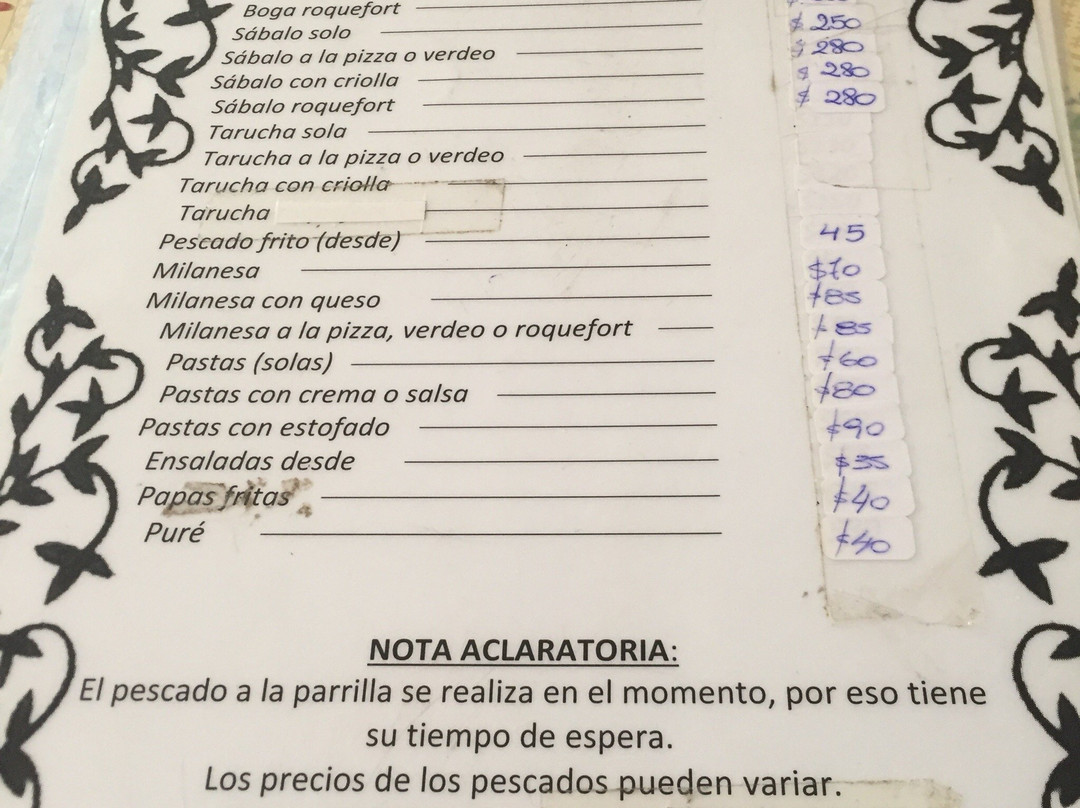 Boga roquefort
Sábalo solo $ 250
Sábalo a la pizza o verdeo $ 280
Sábalo con criolla $ 280
Sábalo roquefort $ 280
Tarucha sola
Tarucha a la pizza o verdeo
Tarucha con criolla
Tarucha
Pescado frito (desde) 45
Milanesa $70
Milanesa con queso $85
Milanesa a la pizza, verdeo o roquefort $85
Pastas (solas) $60
Pastas con crema o salsa $80
Pastas con estofado $90
Ensaladas desde $35
Papas fritas $40
Puré $40
NOTA ACLARATORIA:
El pescado a la parrilla se realiza en el momento, por eso tiene
su tiempo de espera.
Los precios de los pescados pueden variar.